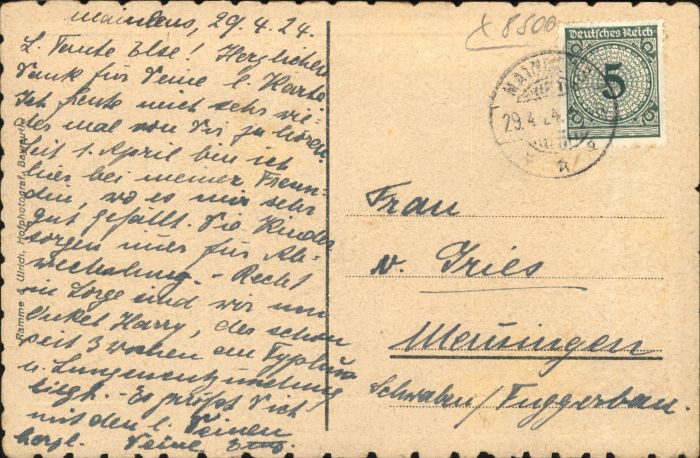 Mainleus, 29.4.24.
L. Tante Else! Herzlichen
Dank für Deine l. Karte
Ich freute mich sehr wie-
der mal von Dir zu hören.
Seit 1. April bin ich
hier bei meiner Freun-
din, wo es mir sehr
gut gefällt. Die Kinder
sorgen immer für Ab-
wechslung. - Recht
in Sorge sind wir um
Onkel Harry, der schon
seit 3 Wochen an Typhus
u. Lungenentzündung
liegt. - Es grüßt Dich
mit den l. Deinen
herzl. Deine
Ramme & Ulrich, Hofphotograf, Bayreuth
x 8500
Deutsches Reich
5
29.4.24.
Frau
v. Dries
Memmingen
Schwaben/Fuggerbau.